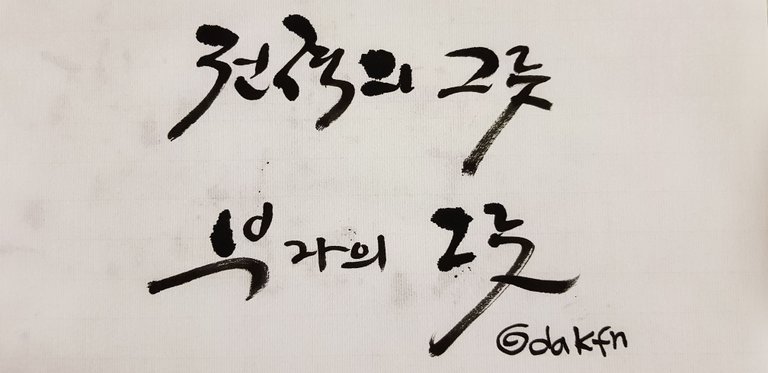 그릇
부자의 그릇
@dakfn